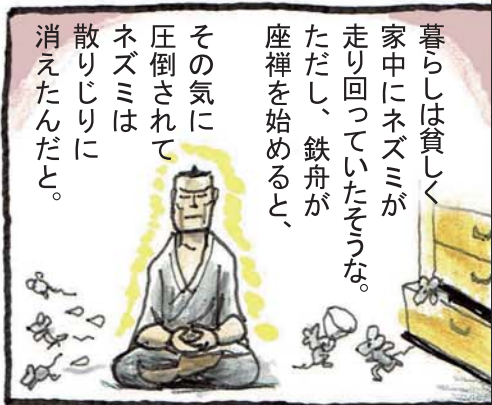 暮らしは貧しく
家中にネズミが
走り回っていたそうな。
ただし、鉄舟が
座禅を始めると、
その気に
圧倒されて
ネズミは
散りじりに
消えたんだと。